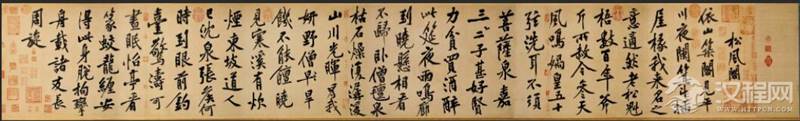 松風閣
依山築閣見平
川夜闌箕斗插
屋椽我來名之
意適然老松魁
梧數百年斧
斤所赦今參天
風鳴媧皇五十
弦洗耳不須
菩薩泉嘉
三二子甚好賢
力貧買酒醉
此筵夜雨鳴廊
到曉懸相看
不歸臥僧氈泉
枯石燥復潺湲
山川光暉為我
妍野僧早旱
飢不能饘曉
見寒溪有炊
煙東坡道人
已沈泉張侯何
時到眼前釣
臺驚濤可
晝眠怡亭看
篆蛟龍纏安
得此身脫拘攣
舟載諸友長
周旋
汉程网